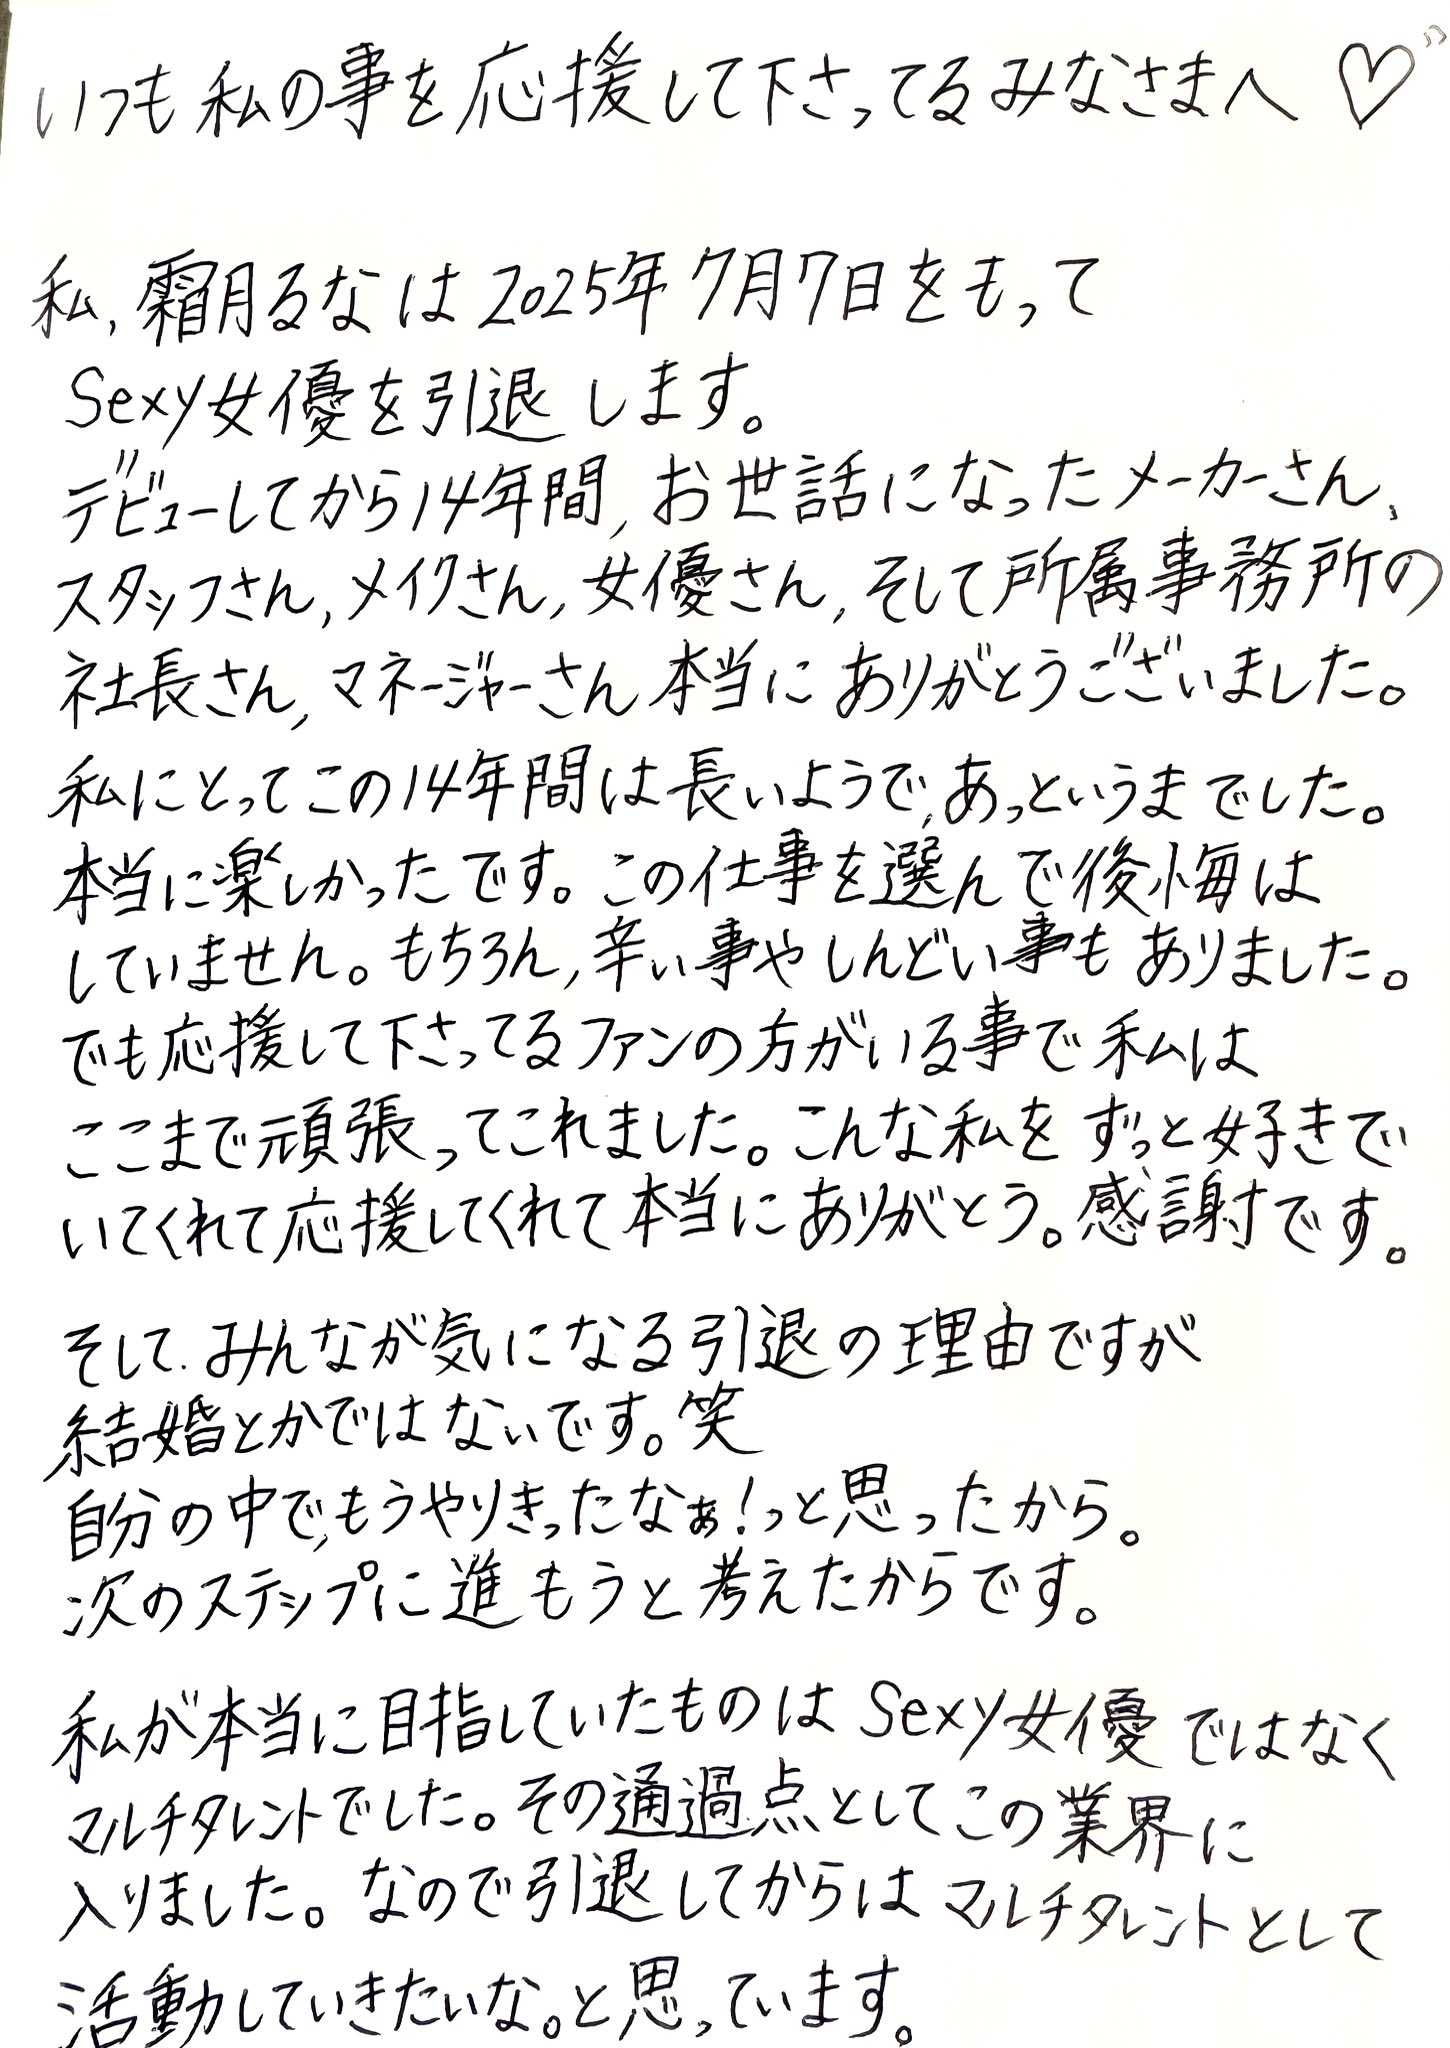 いつも私の事を応援して下さってるみなさまへ♡
私,霜月るなは2025年7月7日をもって
Sexy女優を引退します。
デビューしてから14年間,お世話になったメーカーさん,
スタッフさん,メイクさん,女優さん,そして所属事務所の
社長さん,マネージャーさん本当にありがとうございました。
私にとってこの14年間は長いようで,あっというまでした。
本当に楽しかったです。この仕事を選んで後悔は
していません。もちろん,辛い事やしんどい事もありました。
でも応援して下さってるファンの方がいる事で私は
ここまで頑張ってこれました。こんな私をずっと好きで
いてくれて応援してくれて本当にありがとう。感謝です。
そして.みんなが気になる引退の理由ですが
結婚とかではないです。笑
自分の中で,もうやりきったなぁ!っと思ったから。
次のステップに進もうと考えたからです。
私が本当に目指していたものはSexy女優ではなく
マルチタレントでした。その通過点としてこの業界に
入りました。なので引退してからはマルチタレントとして
活動していきたいな。と思っています。